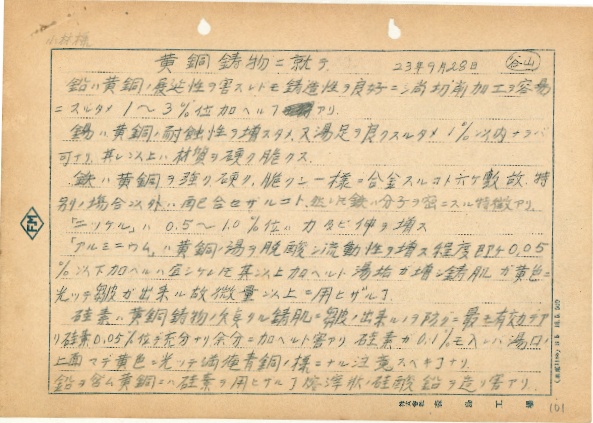 小林様
黄銅鋳物ニ就テ 23年9月28日 谷山
鉛ハ黄銅ノ展延性ヲ害スレトモ鋳造性ヲ良好ニシ尚切削加工ヲ容易
ニスルタメ 1〜3%位加ヘル アリ
錫ハ黄銅ノ耐蝕性ヲ増スタメ、又湯足ヲ良クスルタメ 1%以内ナラバ
可ナリ、其レ以上ハ材質ヲ硬ク脆クス.
鉄ハ黄銅ヲ強ク硬ク、脆クシ一様ニ合金スルコト六ケ敷故、特
別ノ場合以外ハ配合セザルコト、然シ鉄ハ分子ヲ密ニスル特徴アリ.
「ニッケル」ハ 0.5〜1.0%位ハ力及ビ伸ヲ増ス
「アルミニウム」ハ黄銅ノ湯ヲ脱酸シ流動性ヲ増ス程度即チ0.05
%以下加ヘルハ 其以上加ヘルト湯垢ガ増シ鋳肌ガ黄色ニ
光ッテ皺ガ出来ル故微量以上ニ用ヒザル
硅素ハ黄銅鋳物ノ 鋳肌ニ皺ノ出来ルノヲ防グニ最モ有効デア
リ硅素0.05%位デ充分ナリ余分ニ加ヘルト害アリ 硅素ガ0.1%モ入レバ湯口ノ
上面マデ黄色ニ光ッテ 青銅ノ様ニナル注意スベキナリ
鉛ヲ含ム黄銅ニハ硅素ヲ用ヒザル 硅酸鉛ヲ造リ害アリ.
FM
株式会社 工場
101